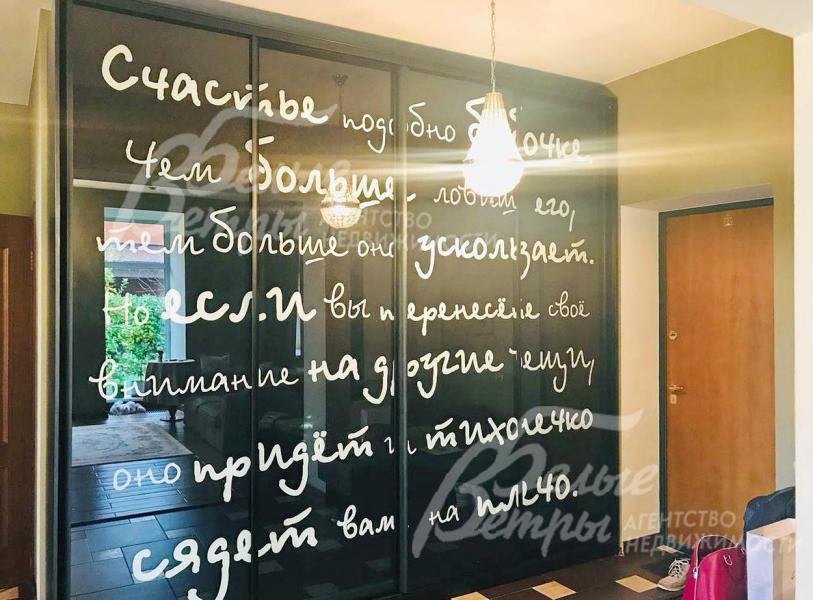 Счастье подобно бабочке.
Чем больше ловиш его,
тем больше оно ускользает.
Но если вы перенесёте своё
внимание на другие вещи,
оно придёт и тихонечко
сядет вам на плечо.
Белые Ветры
АГЕНТСТВО
НЕДВИЖИМОСТИ
Белые Ветры
АГЕНТСТВО
НЕДВИЖИМОСТИ